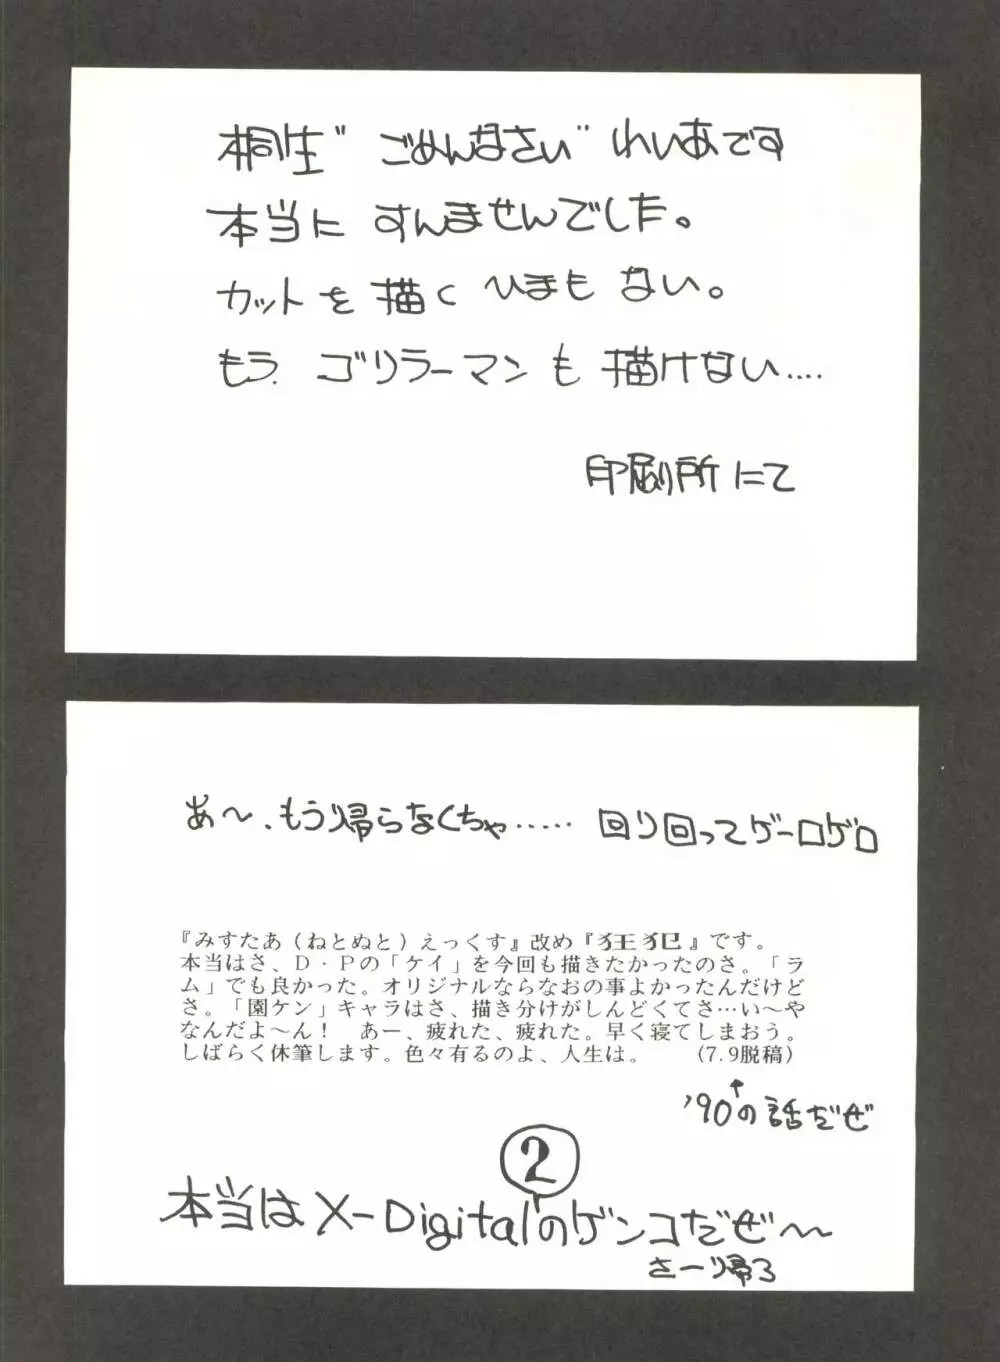 桐生"ごめんなさい"れいあです
本当に すんませんでした。
カットを描くひまもない。
もう.ゴリラーマンも描けない....
印刷所にて
あ〜、もう帰らなくちゃ..... 回り回ってゲーロゲロ
『みすたあ(ねとぬと)えっくす』改め『狂犯』です。
本当はさ、D・Pの「ケイ」を今回も描きたかったのさ。「ラ
ム」でも良かった。オリジナルならなおの事よかったんだけど
さ。「園ケン」キャラはさ、描き分けがしんどくてさ…い〜や
なんだよ〜ん! あー、疲れた、疲れた。早く寝てしまおう。
しばらく休筆します。色々有るのよ、人生は。 (7.9脱稿)
'90の話だぜ
2
本当はX-Digitalのゲンコだぜ〜
さーり帰ろ